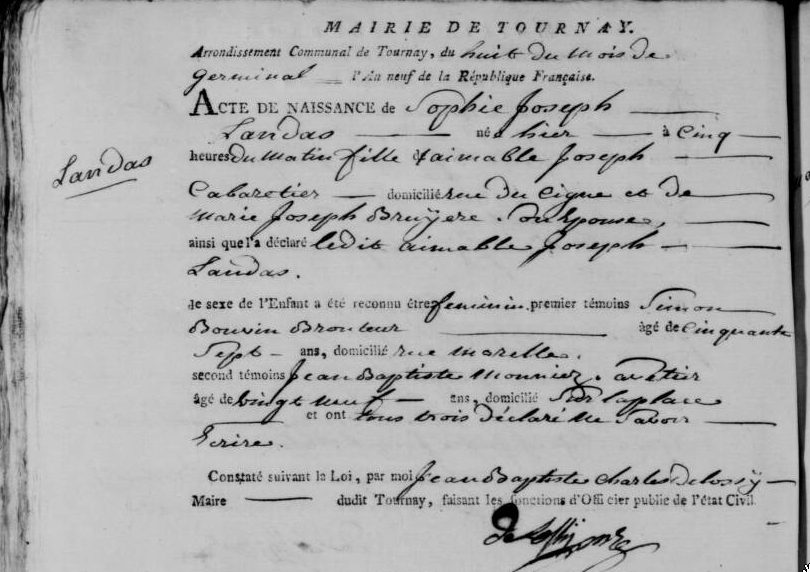 MAIRIE DE TOURNAY.
Arrondissement Communal de Tournay, du huit du mois de
Germinal l'An neuf de la République Française.
ACTE DE NAISSANCE de Sophie Joseph
Landas né hier à Cinq
Landas
heures du matin fille d'aimable Joseph
Cabaretier domicilié rue du Cigne et de
marie Joseph Bruyere. Son Epouse,
ainsi que l'a déclaré ledit aimable Joseph
Landas.
le sexe de l'Enfant a été reconnu être feminin. premier témoins Simon
Bouvin Brouteur âgé de Cinquante
Sept ans, domicilié rue morelle.
second témoins Jean Baptiste monnier.
âgé de vingt neuf ans, domicilié Sur la place
et ont tous trois déclaré ne Savoir
Ecrire.
Constaté suivant la Loi, par moi Jean Baptiste Charles Delossy
Maire dudit Tournay, faisant les fonctions d'Officier public de l'état Civil.